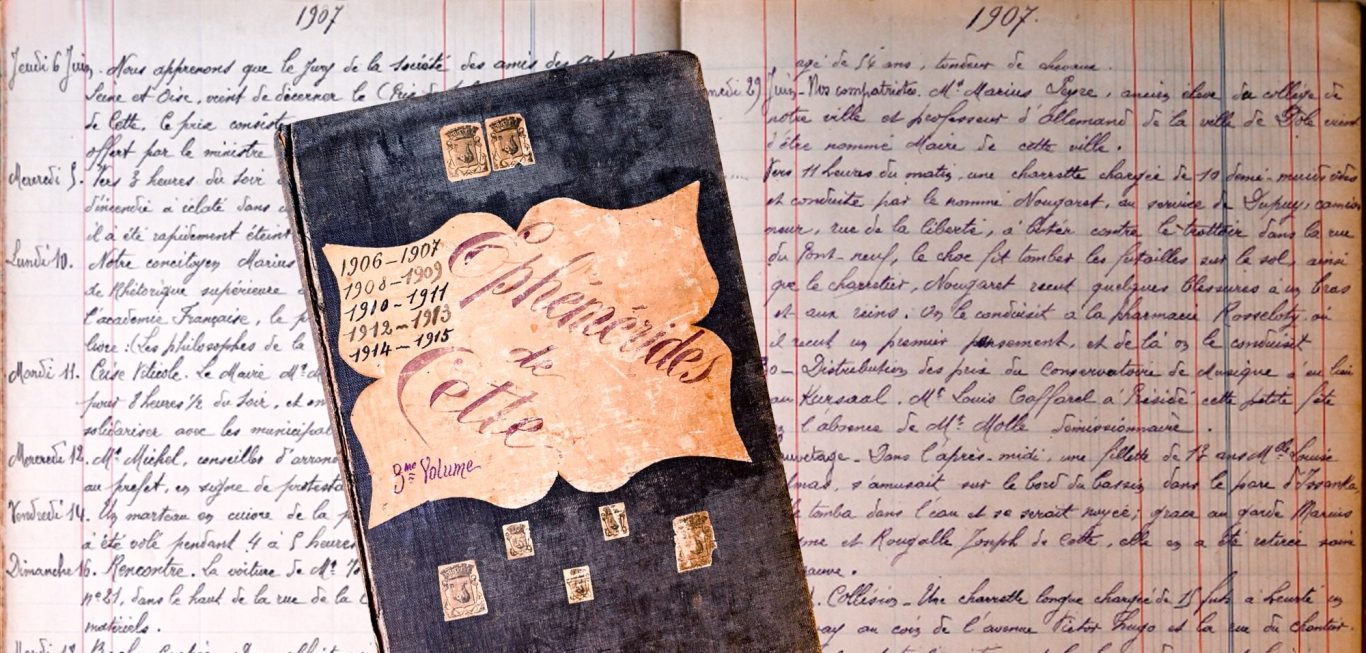 1907
Jeudi 6 Juin. Nous apprenons que le Jury de la Société des amis des
Seine et Oise, vient de décerner le
de Cette. Ce prix consiste
offert par le ministre
Mercredi 5. Vers 3 heures du soir
d'incendie à éclaté dans
il a été rapidement éteint
Lundi 10. Notre concitoyen Marius
de Rhétorique supérieure
l'académie Française, le
livre: (Les philosophes de la
Mardi 11. Crise Viticole. Le Maire Mr
pour 8 heures 1/2 du soir, et
solidariser avec les municipal
Mercredi 12. Mr Michel, conseiller d'arron
au préfet, en signe de protesta
Vendredi 14. Un marteau en cuivre de la
à été volé pendant 4 à 5 heures
Dimanche 16. Rencontre. La voiture de Mr
n° 21, dans le haut de la rue de la
matériels.
1906-1907
1908-1909
1910-1911
1912-1913
1914-1915
Ephémérides
de
Cette
3me Volume
1907.
agé de 54 ans, tondeur de chevaux.
medi 29 Juin - Nos compatriotes. Mr Marius Peyre, ancien élève du collège de
notre ville et professeur d'allemand de la ville de Dôle vient
d'être nommé Maire de cette ville.
Vers 11 heures du matin, une charrette chargée de 10 demi-muids vides
et conduite par le nommé Nougaret, au service de Dupuy, camion
neur, rue de la liberté, à buter contre le trottoir dans la rue
du Pont-neuf, le choc fit tomber les futailles sur le sol, ainsi
que le charretier, Nougaret reçut quelques blessures à un bras
et aux reins. On le conduisit à la pharmacie où
il reçut un premier pansement, et de là on le conduisit
30 - Distribution des prix du Conservatoire de Musique a eu lieu
au Kursaal. Mr Louis Gaffarel à Présidé cette petite fête
l'absence de Mr Molle démissionnaire.
uvetage - Dans l'après-midi, une fillette de 13 ans Mlle Louise
lmas, s'amusait sur le bord du bassin dans le parc d'Issanka
tomba dans l'eau et se serait noyée; grace au garde Marius
et Rougalle Joseph de Cette, elle en a été retirée saine
sauve.
Collision - Une charrette longue chargée de 15 futs à heurté un
way au coin de l'avenue Victor Hugo et la rue du chantier.